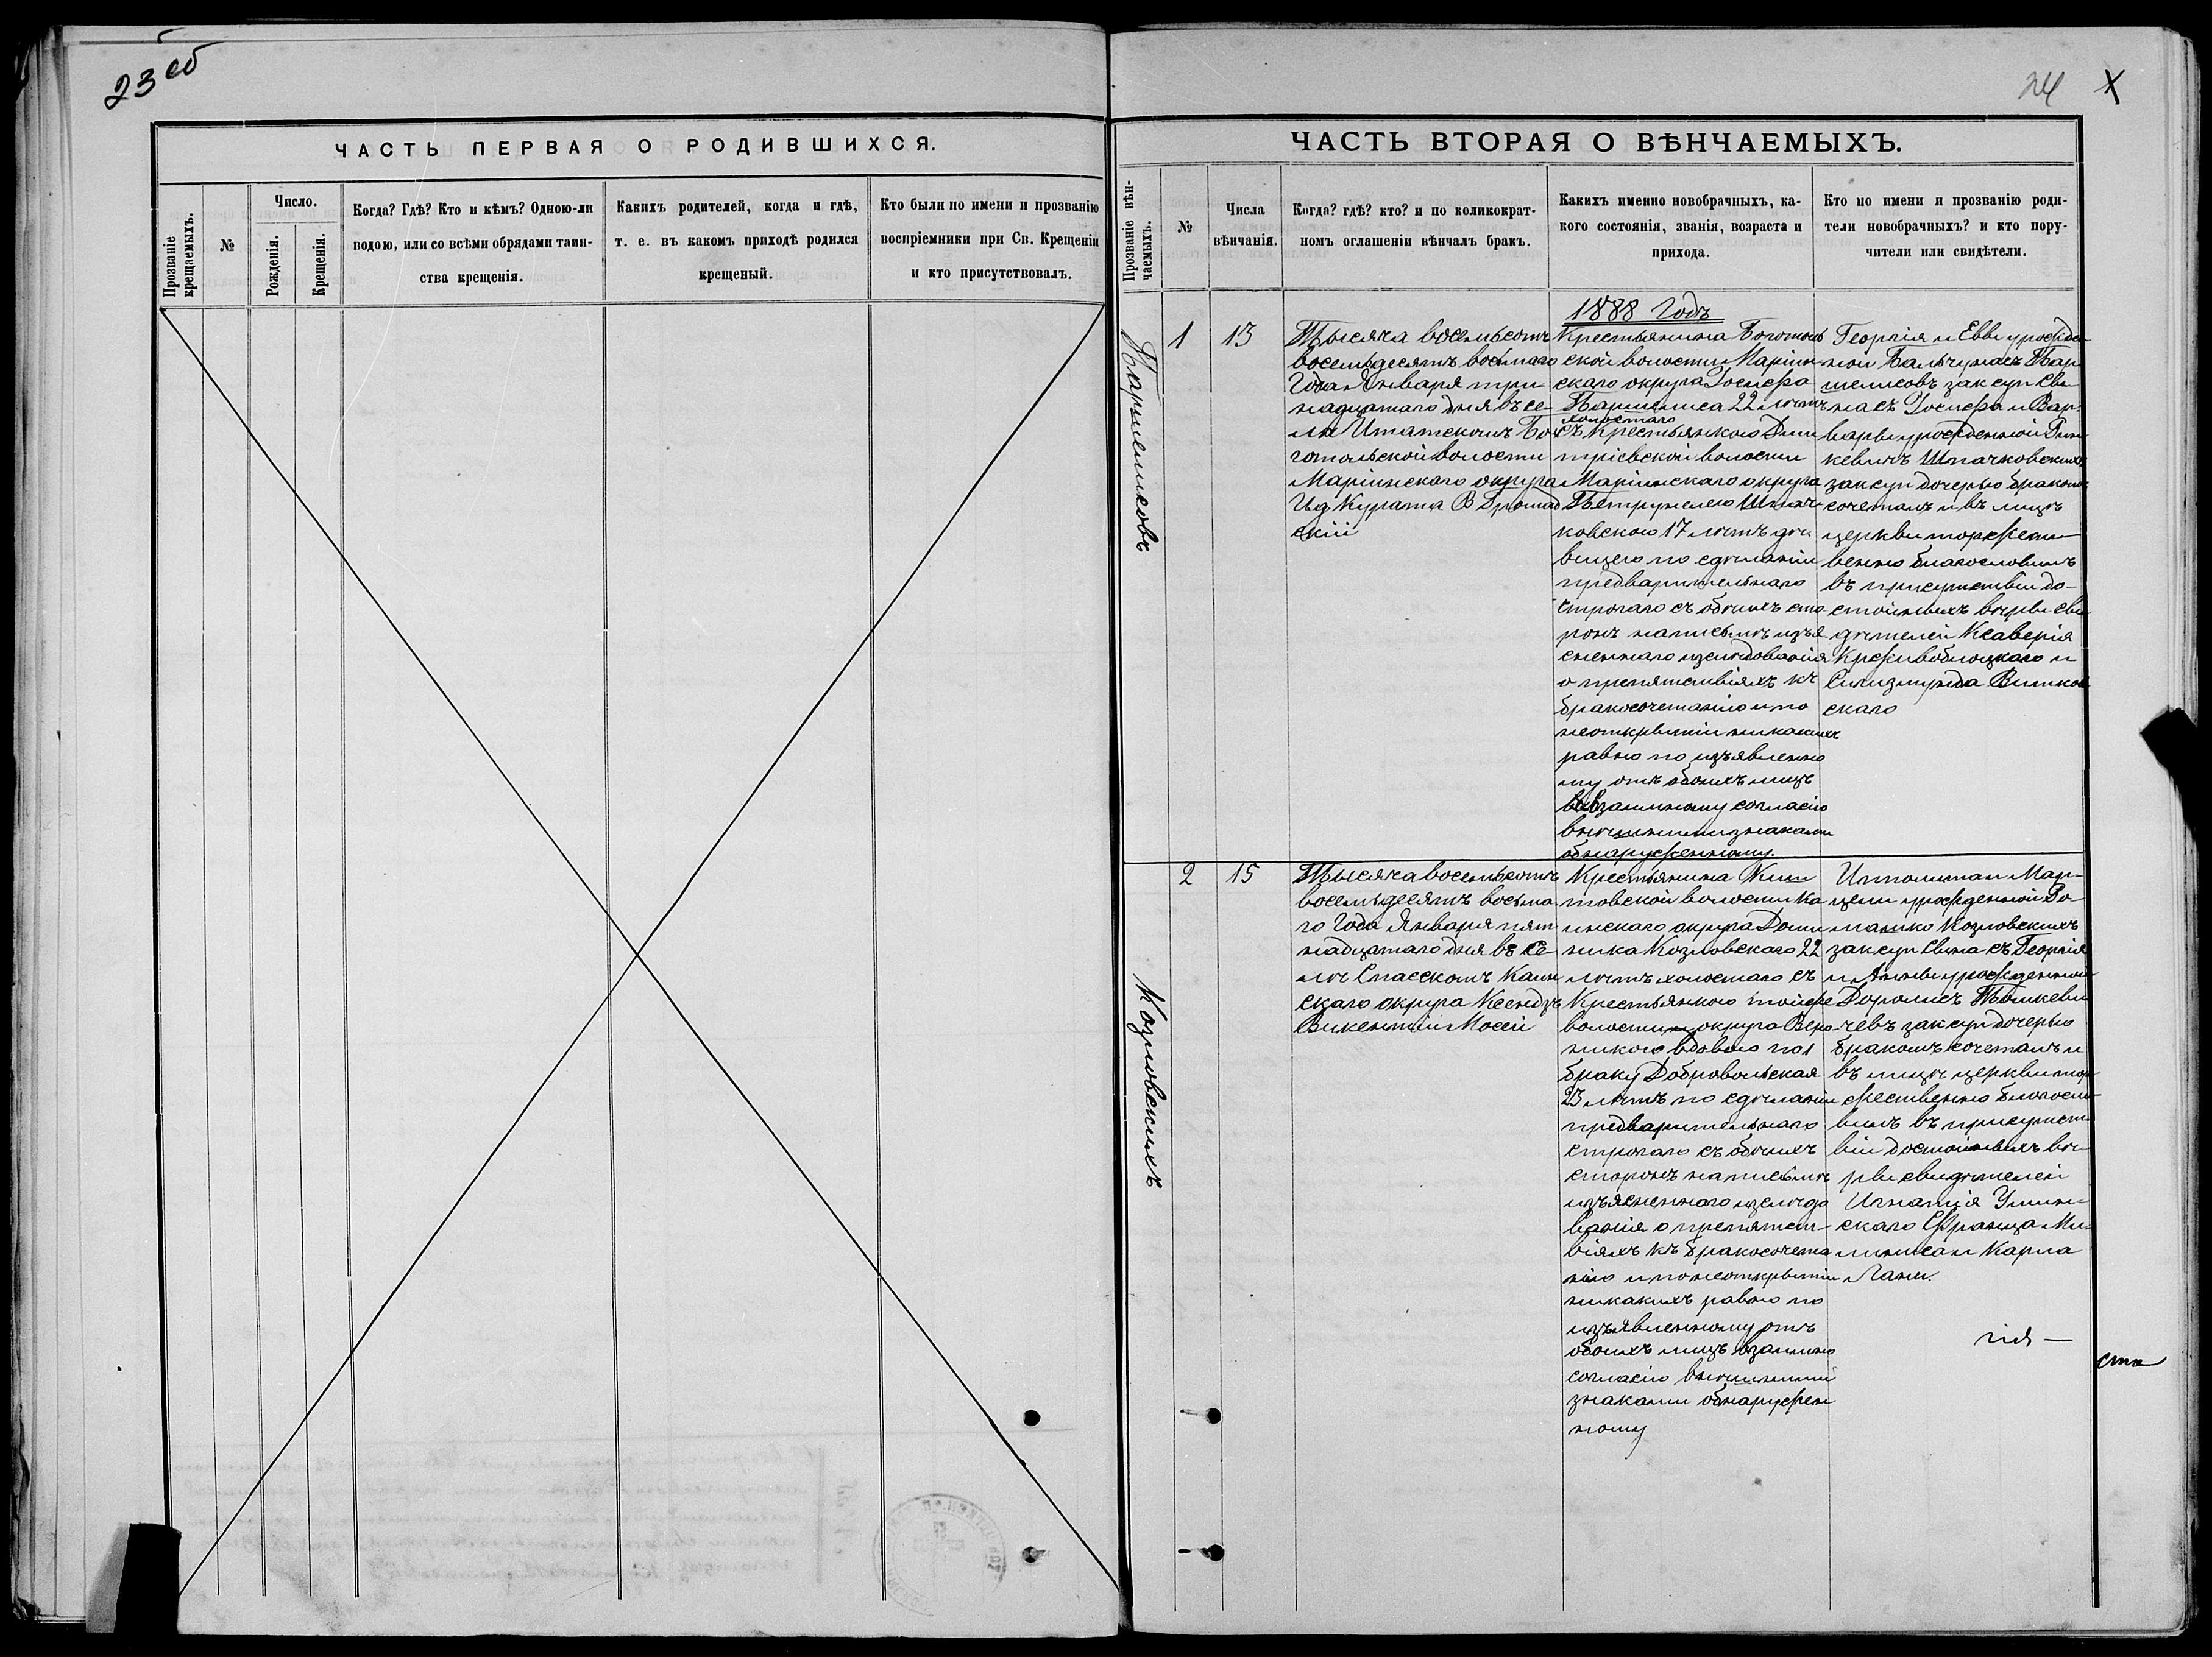 23 об
ЧАСТЬ ПЕРВАЯ О РОДИВШИХСЯ.
Прозваніе крещаемыхъ.
№
Число.
Рожденія.
Крещенія.
Когда? Гдѣ? Кто и кѣмъ? Одною-ли
водою, или со всѣми обрядами таин-
ства крещенія.
Какихъ родителей, когда и гдѣ,
т. е. въ какомъ приходѣ родился
крещеный.
Кто были по имени и прозванію
воспріемники при Св. Крещеніи
и кто присутствовалъ.
24 X
ЧАСТЬ ВТОРАЯ О ВѢНЧАЕМЫХЪ.
Прозваніе вѣн-
чаемыхъ.
№
Числа
вѣнчанія.
Когда? гдѣ? кто? и по коликократ-
номъ оглашеніи вѣнчалъ бракъ.
Какихъ именно новобрачныхъ, ка-
кого состоянія, званія, возраста и
прихода.
Кто по имени и прозванію роди-
тели новобрачныхъ? и кто пору-
чители или свидѣтели.
1888 Годъ
1
13
Тысяча восемьсотъ
восемьдесятъ восьмаго
Года Января три
надцатаго дня въ се-
лѣ Итатскомъ Бо
готольской волости
Маріинскаго округа
И д Курата В Громад
скій
Крестьянина Боготоль
ской волости Маріин
скаго округа Іосифа
22 лѣтъ
холостаго
съ крестьянкою Дми
тріевской волости
Маріинскаго округа
Петрунелею Шпач
ковскою 17 лѣтъ дѣ
вицею по сдѣланіи
предварительнаго
строгаго съ обоихъ сто
ронъ на письмѣ изъя
сненнаго изслѣдованія
о препятствіяхъ къ
бракосочетанію и по
неоткрытіи никакихъ
равно по изъявленно
му отъ обоихъ лицъ
взаимному согласію
внѣшними знаками
обнаруженному.
Георгія и Еввы урожден
ной зак суп сы
на съ Іосифа и Вар
вары урожденной
Шпачковскихъ
зак суп дочерью бракомъ
сочеталъ и въ лицѣ
церкви торжест
венно благословилъ
въ присутствіи до-
стойныхъ вѣры сви
дѣтелей Ксаверія
Крживоблоцкаго и
Сигизмунда Витков
скаго
Козловскихъ
2
15
Тысяча восемьсотъ
восемьдесятъ восьма
го Года Января пят
надцатаго дня въ се-
лѣ Спасскомъ Каин
скаго округа Ксендзъ
Викентій Мосей
Крестьянина Киш
товской волости Ка
инскаго округа Доми
ника Козловскаго 22
лѣтъ холостаго съ
Крестьянкою тойже
волости и округа Веро
никою вдовою по 1
браку Добровольская
23 лѣтъ по сдѣланіи
предварительнаго
строгаго съ обоихъ
сторонъ на письмѣ
изъясненнаго изслѣдо
ванія о препятст-
віяхъ къ бракосочета
нію и по неоткрытіи
никакихъ равно по
изъявленному отъ
обоихъ лицъ взаимно
согласію внѣшними
знаками обнаружен
ному
Ипполита и Мар-
цели урожденной Ро-
манко Козловскихъ
зак суп сына съ Георгія
и Анны урожденной
чевъ зак суп дочерью
бракомъ сочеталъ и
въ лицѣ церкви тор
жественно благосло-
вилъ въ присутст
віи достойныхъ вѣ
ры свидѣтелей
Игнатія
скаго Франца
и Карла
гія —
ста